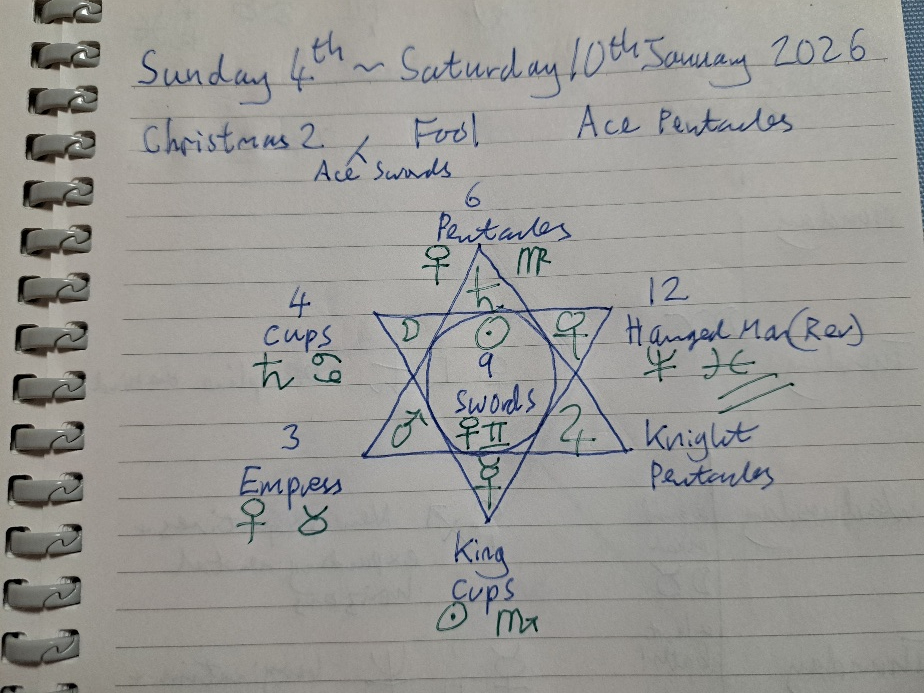 Sunday 4th ~ Saturday 10th January 2026
Christmas 2 Fool Ace Pentacles
Ace Swords
6
Pentacles
♀ ♍
♄
4
Cups
♄ ♋
☽
☉
♀
12
Hanged Man (Rev)
♆ ♓
9
Swords
♀ ♊
♂
♃
3
Empress
♀ ♉
☿
Knight
Pentacles
King
Cups
☉ ♏